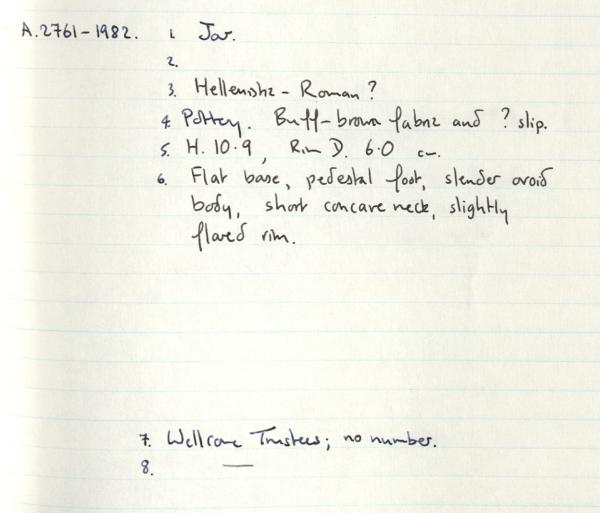 A.2761-1982. 1. Jar.
2.
3. Hellenistic - Roman ?
4. Pottery. Buff-brown fabric and ? slip.
5. H. 10.9, Rim D. 6.0 cm.
6. Flat base, pedestal foot, slender ovoid
body, short concave neck, slightly
flared rim.
7. Wellcome Trustees; no number.
8. —